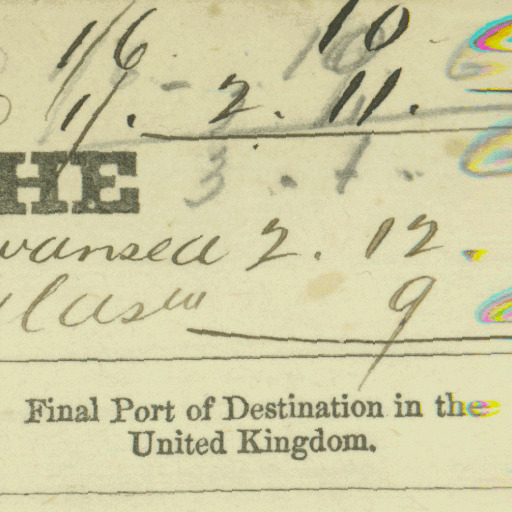 1/6. 10
11. 2. 11.
3. 1
HE
wansea 2. 12.
las 9
Final Port of Destination in the
United Kingdom.